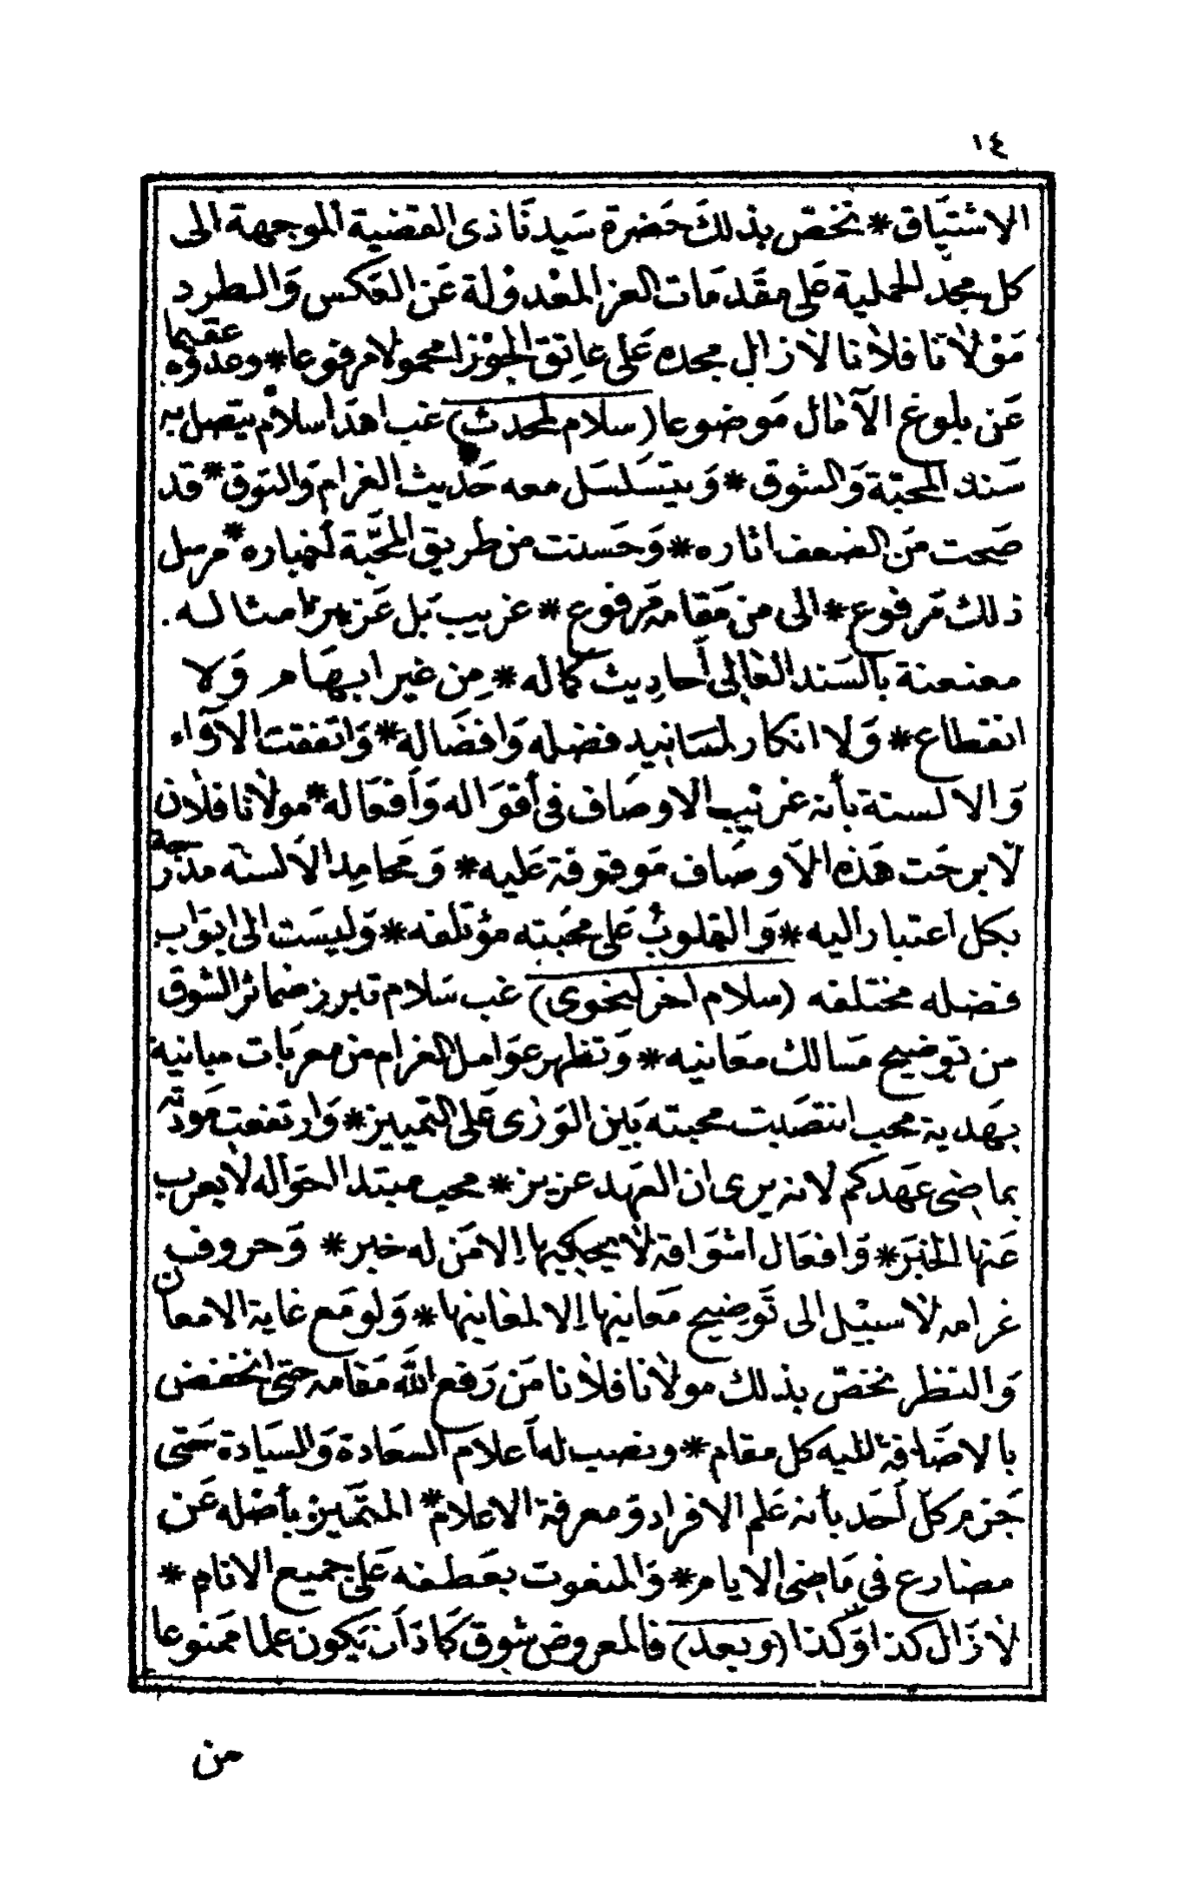 ١٤
الاشتياق * نخص بذلك حضرة سيدنا ذى القضية الموجهة الى
كل مجد الحملية على مقدمات العز المعدولة عن العكس والطرد
مولانا فلانا لازال مجده على عاتق الجوزا محمولا مرفوعا * وعدوه عقيما
عن بلوغ الآمال موضوعا (سلام لمحدث) غب اهدا سلام يتصل به
سند المحبة والشوق * ويتسلسل معه حديث الغرام والتوق * قد
صحت من الضعفا اثاره * وحسنت من طريق المحبة أخباره * مرسل
ذلك مرفوع * الى من مقامه مرفوع * غريب بل عزيز امثاله .
معنعنة بالسند العالى أحاديث كماله * من غير ابهام ولا
انقطاع * ولا انكار لمسانيد فضله وافضاله * واتفقت الآراء
والالسنة بأنه غريب الاوصاف فى أقواله وأفعاله * مولانا فلان
لا برحت هذه الاوصاف موقوفة عليه * ومحامد الالسنه مدرجة
بكل اعتبار اليه * والقلوب على محبته مؤتلفه * وليست الى ابواب
فضله مختلفه (سلام اخر لنحوى) غب سلام تبرز ضمائر الشوق
من توضيح مسالك معانيه * وتظهر عوامل الغرام من معربات مبانيه
بهدية محب انتصبت محبته بين الورى على التمييز * وارتفعت مودته
بماضى عهدكم لانه يرى ان العهد عزيز * محب مبتدا احواله لا يعرب
عنها الخبر * وافعال اشواقه لا يحكيها إلا من له خبر * وحروف
غرامه لا سبيل الى توضيح معانيها إلا لمعانيها * ولو مع غاية الامعان
والنظر نخص بذلك مولانا فلانا من رفع الله مقامه حتى انخفض
بالاضافة اليه كل مقام * ونصب له أعلام السعادة والسيادة حتى
جزم كل أحد بأنه علم الافراد ومعرفة الاعلام * المتميز بأصله عن
مضارع فى ماضى الايام * والمنعوت بعطفه على جميع الانام *
لازال كذا وكذا (وبعد) فالمعروض شوق كاد أن يكون علما ممنوعا
من